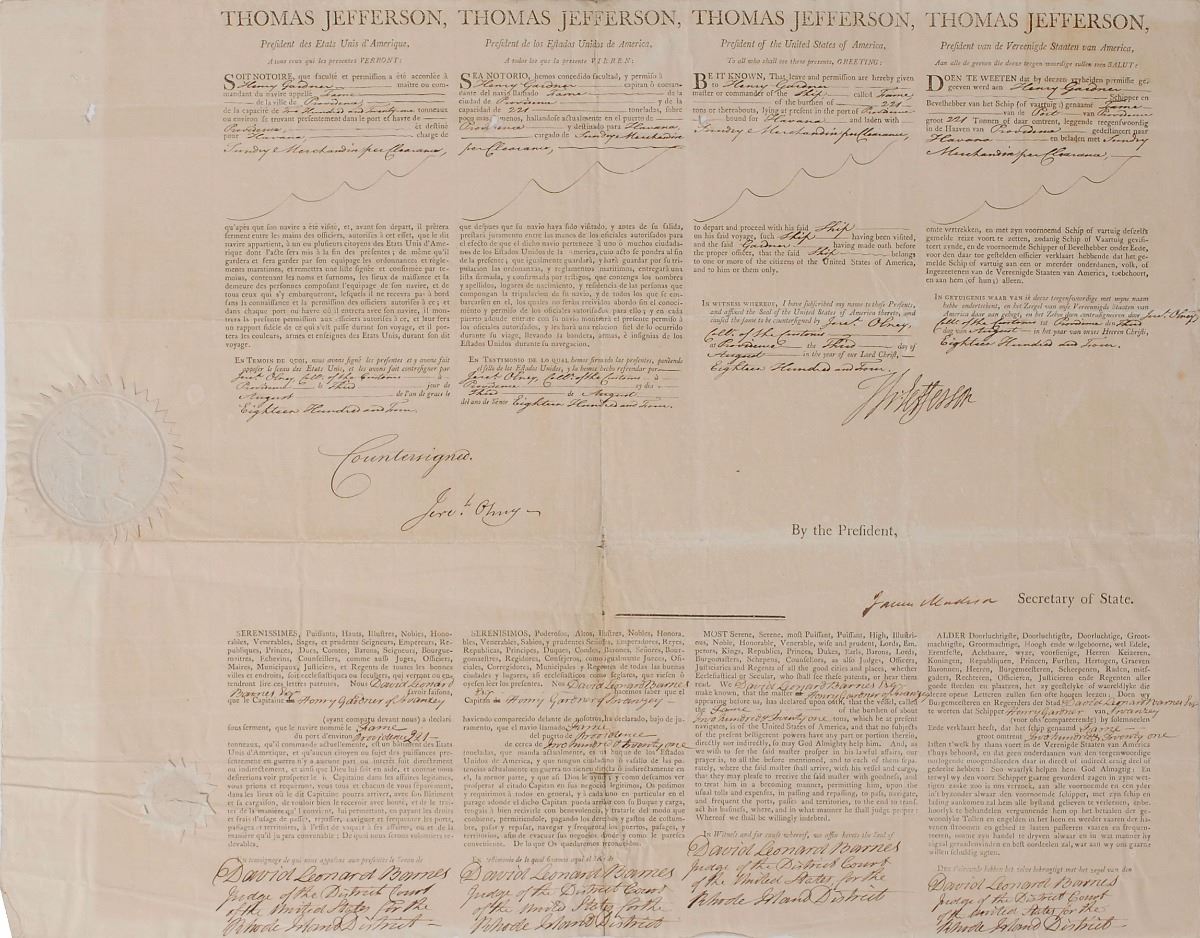 THOMAS JEFFERSON,
Président des Etats Unis d'Amerique,
A tous ceux qui les presentes VERRONT:
SOIT NOTOIRE, que faculté et permission a été accordée à
Henry Gardner maître ou com-
mandant du navire appellé Fame
de la ville de Providence
de la capacité de Two Hundred Twenty one tonneaux
ou environ se trouvant presentement dans le port et havre de
Providence et destiné
pour Havana chargé de
Sundry e Merchandize per Clearance,
qu'après que son navire a été visité, et, avant son depart, il prêtera
serment entre les mains des officiers, autorisés à cet effet, que le dit
navire appartient, à un ou plusieurs citoyens des Etats Unis d'Ame-
rique dont l'acte sera mis à la fin des presentes; de même qu'il
gardera et fera garder par son équipage les ordonnances et régle-
ments maritimes, et remettra une liste signée et confirmée par te-
moins, contenant les noms et surnoms, les lieux de naissance et la
demeure des personnes composant l'équipage de son navire, et de
tous ceux qui s'y embarqueront, lesquels il ne recevra pas à bord
sans la connaissance et la permission des officiers autorisés à ce; et
dans chaque port ou havre où il entrera avec son navire, il mon-
trera la presente permission aux officiers autorisés à ce, et leur fera
un rapport fidéle de ce qui s'est passé durant son voyage, et il por-
tera les couleurs, armes et enseignes des Etats Unis, durant son dit
voyage.
EN TEMOIN DE QUOI, nous avons signé les presentes et y avons fait
apposer le sceau des Etats Unis, et les avons fait contresigner par
Jere.h Olney, Coll.r of the Customs à
Providence le Third jour de
August de l'an de grace le
Eighteen Hundred and Four.
THOMAS JEFFERSON,
President de los Estados Unidos de America,
A todos los que la presente VIEREN:
SEA NOTORIO, hemos concedido facultad, y permiso à
Henry Gardner capitan ò coman-
dante del navio llamado Fame de la
ciudad de Providence y de la
capacidad de 221 toneladas, sobre
poco mas ò menos, hallandose actualmente en el puerto de
Providence y destinado para Havana,
cargado de Sundry e Merchandize
per Clearance,
que despues que su navio haya sido visitado, y antes de su salida,
prestará juramento entre las manos de los oficiales autorizados para
el efecto de que el dicho navio pertenece à uno ò muchos ciudada-
nos de los Estados Unidos de la America, cuio acto se pondra al fin
de la presente; que igualmente guardará, y hará guardar por su tri-
pulacion las ordenanzas, y reglamentos maritimos, entregará una
lista firmada, y confirmada por testigos, que contenga los nombres
y apellidos, lugares de nacimiento, y residencia de las personas que
compongan la tripulacion de su navio, y de todos los que se em-
barcasen en el, los quales no serán recividos abordo sin el conoci-
miento y permiso de los oficiales autorizados para ello; y en cada
puerto adonde entrare con su navio mostrará el presente permiso à
los oficiales autorizados, y les hará una relacion fiel de lo ocurrido
durante su viage, llevando la bandera, armas, è insignias de los
Estados Unidos durante su navegacion.
EN TESTIMONIO DE LO QUAL, hemos firmado las presentes, poniendo
el sello de los Estados Unidos, y la hemos hecho refrendar por
Jere.h Olney, Coll.r of the Customs à
Providence ey dia
Third de August
del ano de Xmo Eighteen Hundred and Four.
THOMAS JEFFERSON,
President of the United States of America,
To all who shall see these presents, GREETING:
BE IT KNOWN, That leave and permission are hereby given
to Henry Gardner
master or commander of the Ship called Fame
of the burthen of 221
tons or thereabouts, lying at present in the port of Providence
bound for Havana and laden with
Sundry e Merchandize per Clearance,
to depart and proceed with his said Ship
on his said voyage, such Ship having been visited,
and the said Gardner having made oath before
the proper officer, that the said Ship belongs
to one or more of the citizens of the United States of America,
and to him or them only.
IN WITNESS WHEREOF, I have subscribed my name to these Presents,
and affixed the Seal of the United States of America thereto, and
caused the same to be countersigned by Jere.h Olney,
Coll.r of the Customs
at Providence the Third day of
August in the year of our Lord Christ,
Eighteen Hundred and Four.
Th Jefferson
THOMAS JEFFERSON,
President van de Vereenigde Staaten van America,
Aan alle de geenen die deeze tegenwoordige zullen zien SALUT:
DOEN TE WEETEN dat by deezen vryheiden permissie ge-
geeven werd aen Henry Gardner
Schipper en
Bevelhebber van het Schip (of vaartuig) genaamt Fame
van de Port van Providence
groot 221 Tonnen of daar omtrent, leggende tegenswoordig
in de Haaven van Providence gedestineert naar
Havana en beladen met Sundry
Merchandize per Clearance,
omte vertrekken, en met zyn voornoemd Schip of vaartuig deszelfs
gemelde reize voort te zetten, zodanig Schip of Vaartuig gevisi-
teert zynde, en de voornoemde Schipper of Bevelhebber onder Eede,
voor den daar toe gestelden officier verklaart hebbende dat het ge-
melde Schip of vartuig aan een or meerder onderdanen, volk, of
Ingezeetenen van de Vereenigde Staaten van America, toebehoort,
en aan hem (of hun) alleen.
IN GETUIGENIS WAAR VAN ik deeze tegenswoordige met myne naam
hebbe ondertekent, en het Zeegel van onse Vereenigde Staaten van
America daar aan gehegt, en het Zelve doen contrasigneeren door Jere.h Olney,
Coll.r of the Customs te Providence den Third
dag van August in het jaar van onser Heeren Christi,
Eighteen Hundred and Four.
Countersigned.
Jere.h Olney
By the President,
James Madison Secretary of State.
SERENISSIMES, Puissants, Hauts, Illustres, Nobles, Hono-
rables, Venerables, Sages, et prudents Seigneurs, Empereurs, Re-
publiques, Princes, Ducs, Comtes, Barons, Seigneurs, Bourgue-
maitres, Echevins, Counseillers, comme aussi Juges, Officiers,
Maires, Municipaux, Justiciers, et Regents de toutes les bonnes
villes et endroits, soit ecclesiastiques ou seculiers, qui verront ou en-
tendront lire ces lettres patentes. Nous David Leonard
Barnes Esqr savoir faisons,
que le Capitaine Henry Gardner of Swanzey
(ayant comparu devant nous) a declaré
sous serment, que le navire nommé le Fame
du port d'environ Providence 221
tonneaux, qu'il commande actuellement, est un bâtiment des Etats
Unis d'Amerique, et qu'aucun citoyen ou sujet des puissances pre-
sentement en guerre n'y a aucune part ou interêt soit directement
ou indirectement, et ainsi que Dieu lui soit en aide, et comme nous
désirerions voir prosperer le dit Capitaine dans ses affaires legitimes,
nous prions et requerons, vous tous et chacun de vous separement,
dans les lieux où le dit Capitaine pourra arriver, avec son bâtiment
et sa cargaison, de touloir bien le recevoir avec bonté, et de le trai-
ter de la maniere qu'il convient, lui permettant, en payant les droits
et frais d'usage de passer, repasser, naviguer et frequenter les ports,
passages et territoires, à l'effet de vaquer à ses affaires, où et de la
maniere qu'il jugera convenable; De quoi nous serons volontiers re-
devables,
En temoignage de quoi nous apposons aux presentes le Sceau de
David Leonard Barnes
Judge of the District Court
of the United States for the
Rhode Island District
SERENISIMOS, Poderosos, Altos, Ilustres, Nobles, Honora-
bles, Venerables, Sabios, y prudentes Señores, Emperadores, Reyes,
Republicas, Principes, Duques, Condes, Barones, Señores, Bour-
gomaestros, Regidores, Consejeros, como igualmente Jueces, Ofi-
ciales, Corregidores, Municipales y Regentes de todas las buenas
ciudades y lugares, asi ecclesiasticos como seglares, que viesen ò
oyesen leer estas letras patentes: Nos David Leonard Barnes
Esqr hacemos saber que el
Capitan Henry Gardner of Swanzey
haviendo comparecido delante de nosotros, ha declarado, bajo de ju-
ramento, que el navio llamado Fame
del puerto de Providence
de cerca de Two hundred & Twenty one
toneladas, que manda actualmente, es un buque de los Estados
Unidos de America, y que ningun ciudadano ò vasallo de las po-
tencias actualmente en guerra no tienen directa ò indirectamente en
el, la menor parte, y que asi Dios le ayude; y como deseamos ver
prosperar al citado Capitan en sus negocios legitimos, Os pedimos
y requerimos à todos en general, y à cada uno en particular en el
parage donde el dicho Capitan pueda arribar con su Buque y carga,
tengais à bien recivirle con benevolencia, y tratarle del modo que
conbiene, permitiendole, pagando los derechos y gastos de costum-
bre, pasar y repasar, navegar y frequentar los puertos, pasages, y
territorios, afin de evacuar sus negocios donde y como le paresca
conveniente, De lo que Os quedaremos reconocidos.
En testimonio de lo qual ponemos aqui el Sello de
David Leonard Barnes
Judge of the District Court
of the United States for the
Rhode Island District
MOST Serene, Serene, most Puissant, Puissant, High, Illustri-
ous, Noble, Honorable, Venerable, wise and prudent, Lords, Em-
perors, Kings, Republics, Princes, Dukes, Earls, Barons, Lords,
Burgomasters, Schepens, Counsellors, as also Judges, Officers,
Justiciaries and Regents of all the good cities and places, whether
Ecclesiastical or Secular, who shall see these patents, or hear them
read. We David Leonard Barnes Esqr
make known, that the master of Henry Gardner of Swanzey
appearing before us, has declared upon oath, that the vessel, called
the Fame of the burthen of about
Two hundred & twenty one tons, which he at present
navigates, is of the United States of America, and that no subjects
of the present belligerent powers have any part or portion therein,
directly nor indirectly, so may God Almighty help him. And, as
we wish to see the said master prosper in his lawful affairs, our
prayer is, to all the before mentioned, and to each of them sepa-
rately, where the said master shall arrive, with his vessel and cargo,
that they may please to receive the said master with goodness, and
to treat him in a becoming manner, permitting him, upon the
usual tolls and expenses, in passing and repassing, to pass, navigate,
and frequent the ports, passes and territories, to the end to trans-
act his business, where, and in what manner he shall judge proper:
Whereof we shall be willingly indebted.
In Witness and for cause whereof, we affix hereto the Seal of
David Leonard Barnes
Judge of the District Court
of the United States, for the
Rhode Island District
ALDER Doorluchtigste, Doorluchtigste, Doorluchtige, Groot-
machtigste, Grootmachtige, Hoogh ende welgeboone, wel Edele,
Erentfeste, Achtbaare, wyze, voorsienige, Herren Keizeren,
Koningen, Republiquen, Princen, Fursten, Hertogen, Graeven
Baronnen, Heeren, Burgemeesteren, Scheepenen, Raden, mits-
gaders, Rechteren, Officieren, Justiciende ende Regenten aller
goede steeden en plaatzen, het zy geestelyke of waereldlyke die
deeze opene Letteren zullen sien ofte hooren leezen. Doen wy
Burgemeesteren en Regeerders der Stad David Leonard Barnes Esqr
te weeten dat Schipper Henry Gardner van Swanzey
(voor ons) compareerende) by solemneelen
Eede verklaart heeft, dat het schip genaamt Fame
groot omtrent Two hundred & Twenty one
Lasten twelk hy thans voert in de Vereenigde Staaten van America
t'huys behoord, en dat geen onderdaanen van den tegenwoordige
oorlogende moogenthenden daar in direct of indirect eenig deel of
gedeelte hebben: Soo waarlyk helpen hem God Almagtig: En
terwyl wy den voorn Schipper gaerne gevorderd zagen in zyne wet-
tigen zaake zoo is ons verzoek, aan alle voornoemde en een yder
in't byzonder alwaar den voornoemden Schipper, met zyn schip en
lading aankomen zal hem alle blyfand gelieven te verleenen, enbe-
hoorlyk te behandelen vergunnende hem op het betaalen der ge-
woonelyke Tollen en ongelden in het heen en weeder vaaren der
havnen stroomen en gebied te laaten passeeren vaaren en frequen-
teeren, omme zyn handel te dryven alwaar en in wat manier hy
zal geraadenvinden en best oordeelen zal, waar aan wy ons gaarne
willen schuldig agten.
David Leonard Barnes
Judge of the District Court
of the United States for the
Rhode Island District